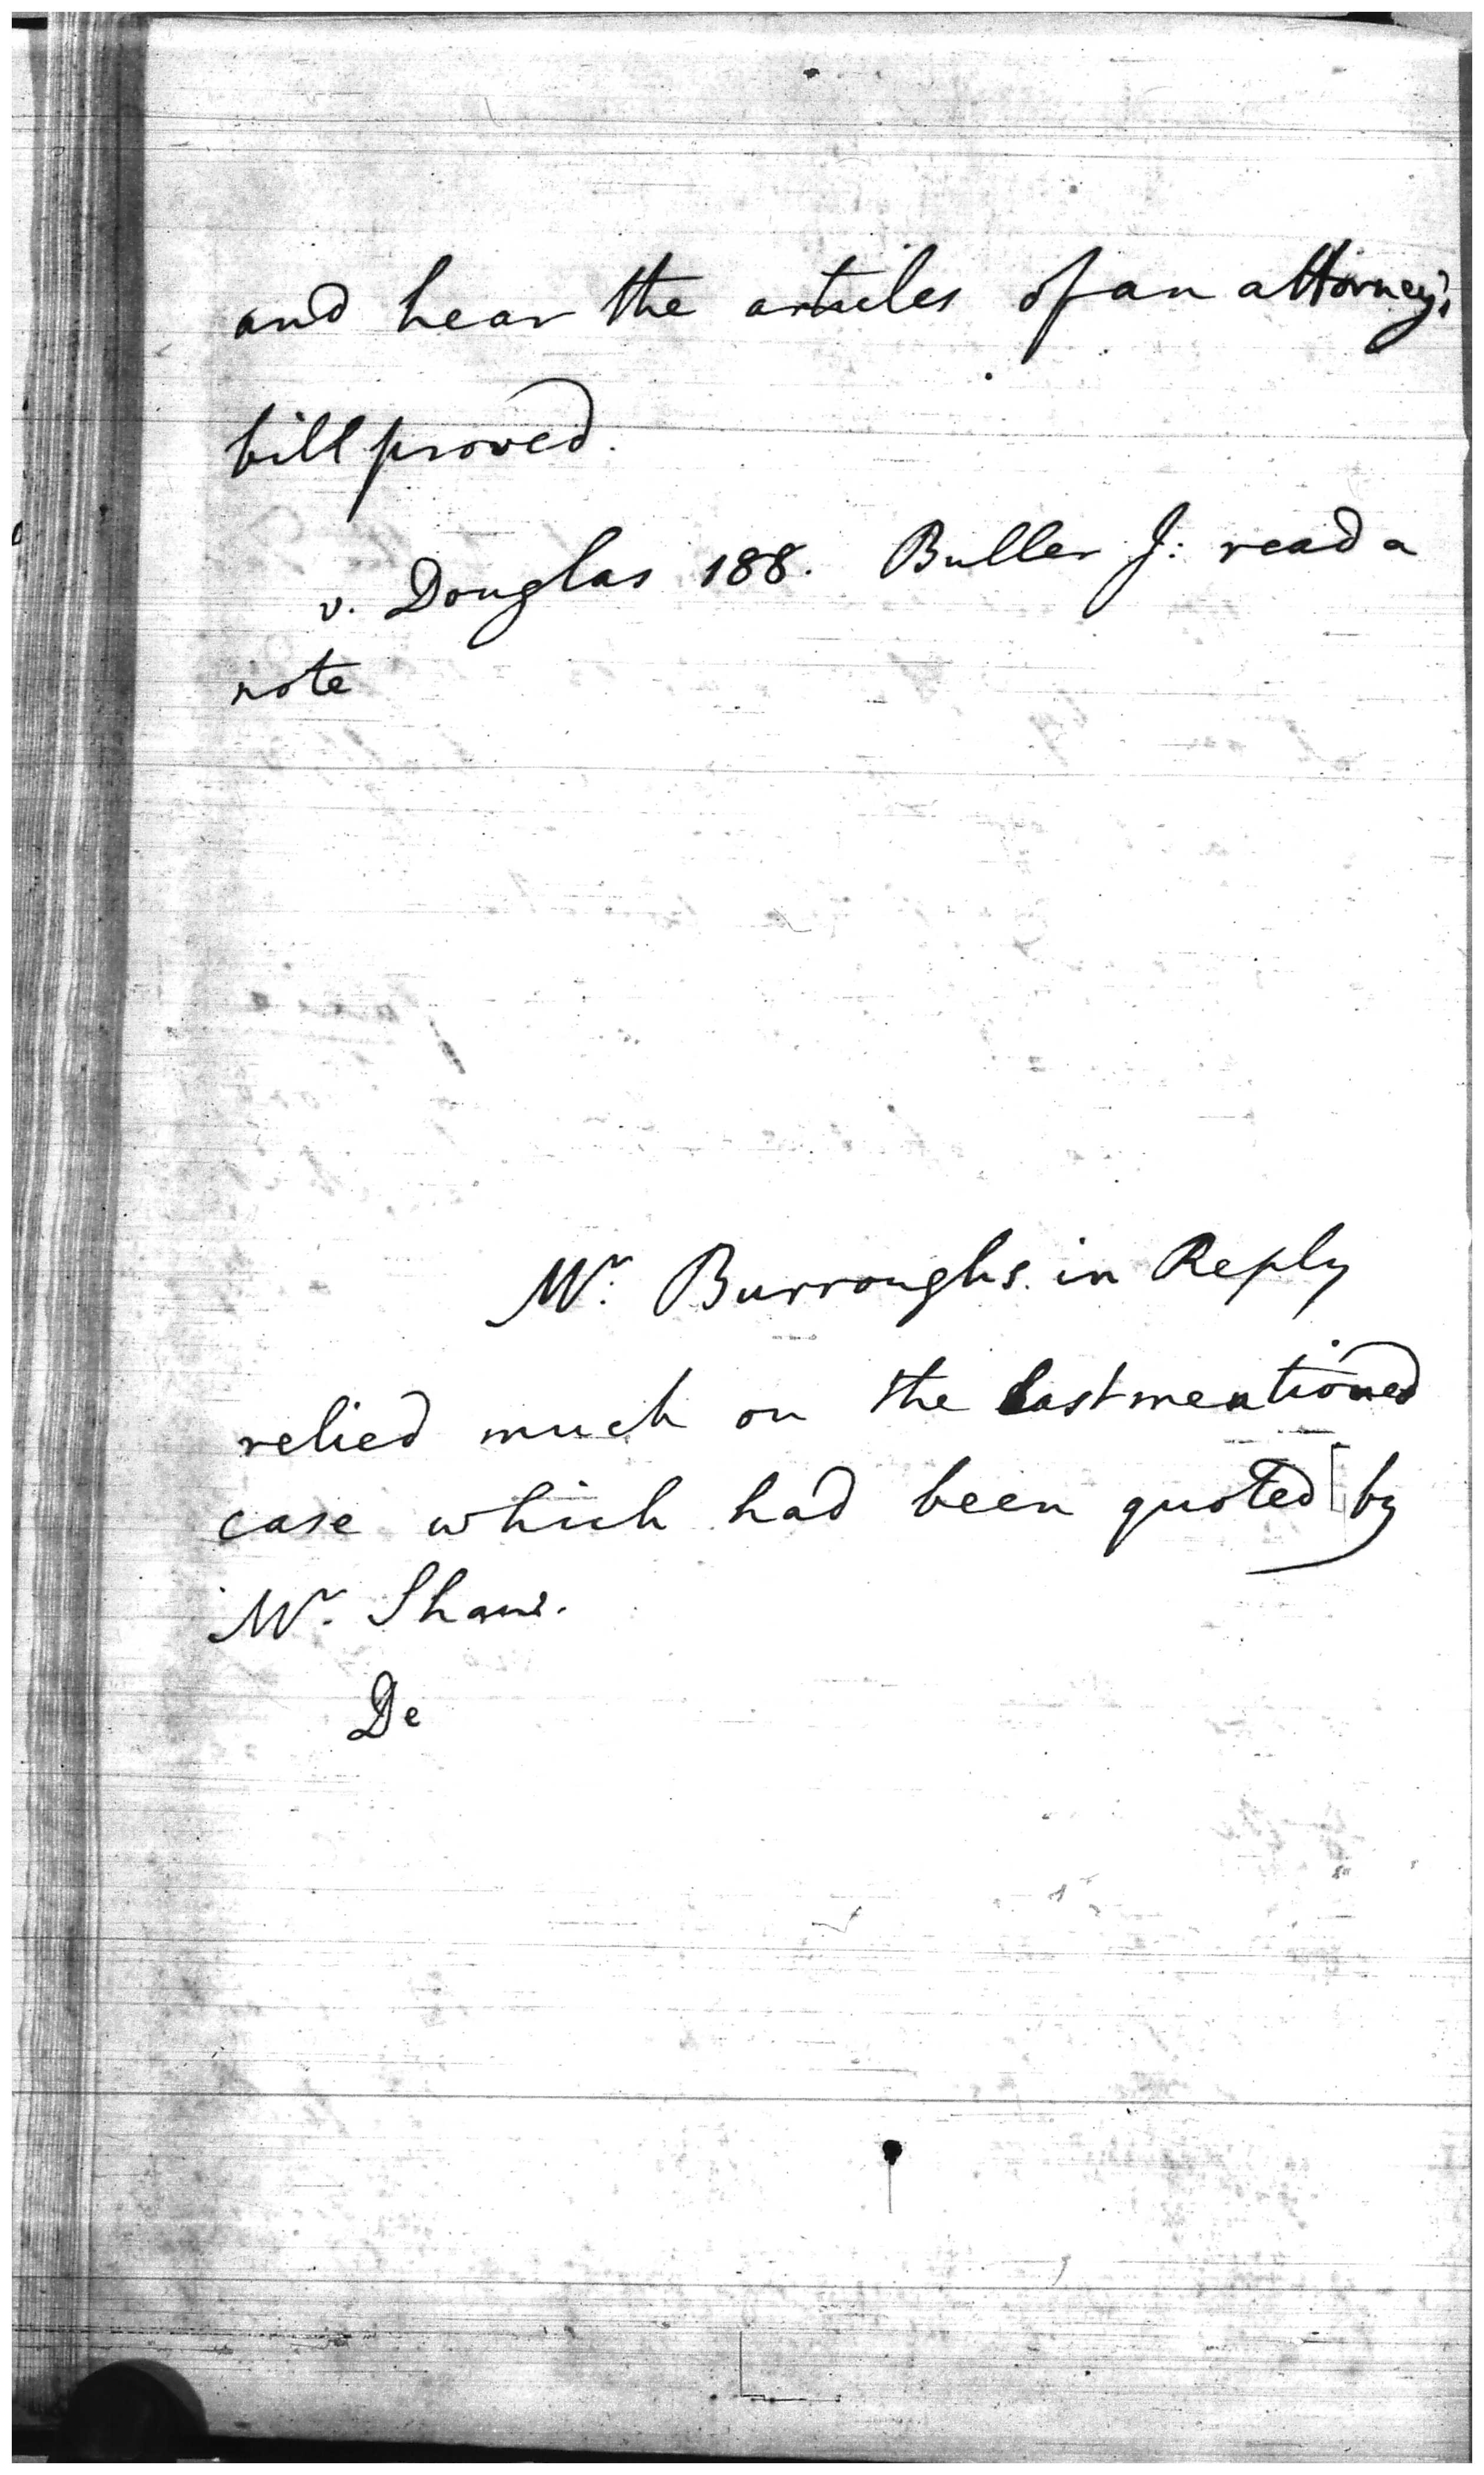 and hear the articles of an attorney's
bill proved.
v. Douglas 188. Buller J: read a
note
Mr. Burroughs in Reply
relied much on the last mentioned
case which had been quoted by
Mr. Shaw.
De